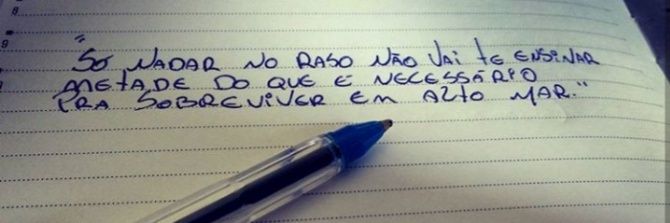 "SÓ NADAR NO RASO NÃO VAI TE ENSINAR
METADE DO QUE É NECESSÁRIO
PRA SOBREVIVER EM ALTO MAR."